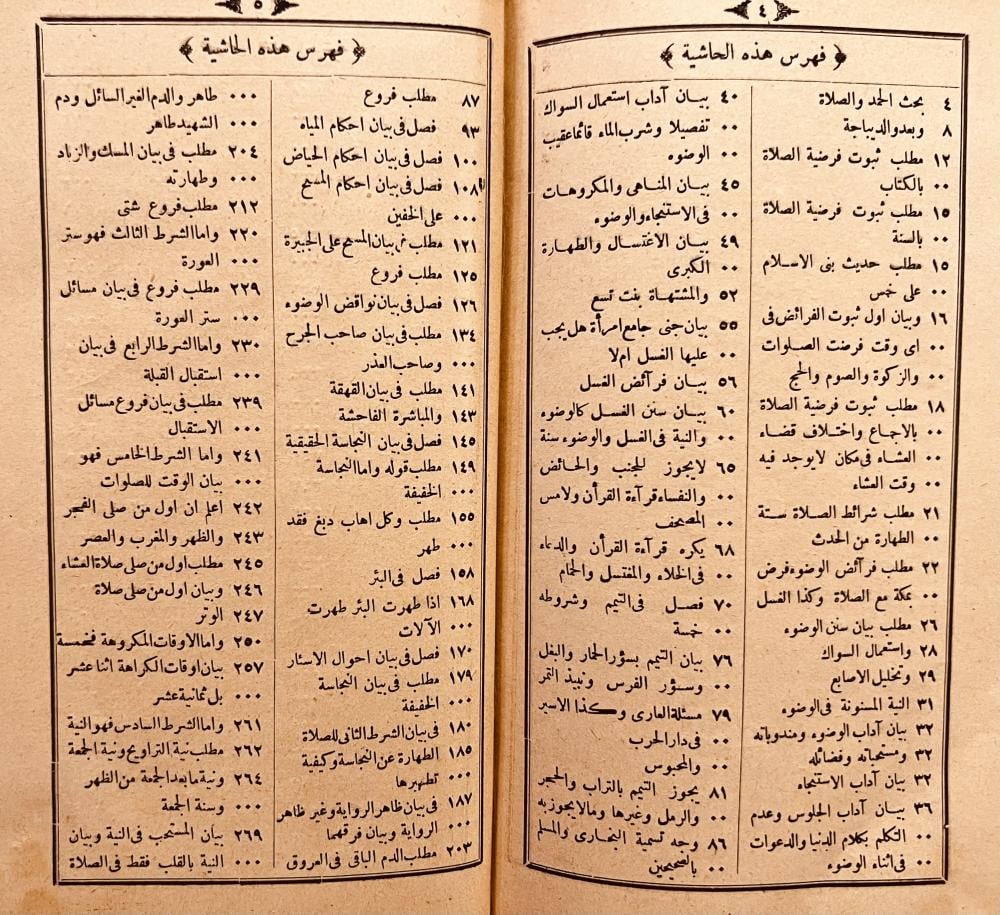 ٤
﴿ فهرس هذه الحاشية ﴾
٤ بحث الحمد والصلاة
٨ وبعد والديباجة
١٢ مطلب ثبوت فرضية الصلاة
٠٠ بالكتاب
١٥ مطلب ثبوت فرضية الصلاة
٠٠ بالسنة
١٥ مطلب حديث بنى الاسلام
٠٠ على خمس
١٦ وبيان اول ثبوت الفرائض فى
٠٠ اى وقت فرضت الصلوات
٠٠ والزكوة والصوم والحج
١٨ مطلب ثبوت فرضية الصلاة
٠٠ بالاجماع واختلاف قضاء
٠٠ العشاء فى مكان لا يوجد فيه
٠٠ وقت العشاء
٢١ مطلب شرائط الصلاة ستة
٠٠ الطهارة من الحدث
٢٢ مطلب فرآئض الوضوء فرض
٠٠ بمكة مع الصلاة وكذا الغسل
٢٦ مطلب بيان سنن الوضوء
٢٨ واستعمال السواك
٢٩ وتخليل الاصابع
٣١ النية المسنونة فى الوضوء
٣٢ بيان آداب الوضوء ومندوباته
٣٢ ومستحباته وفضائله
٣٢ بيان آداب الاستنجاء
٣٦ بيان آداب الجلوس وعدم
٠٠ التكلم بكلام الدنيا والدعوات
٠٠ فى اثناء الوضوء
٤٠ بيان آداب استعمال السواك
٠٠ تفصيلا وشرب الماء قائما عقيب
٠٠ الوضوء
٤٥ بيان المناهى والمكروهات
٠٠ فى الاستنجاء والوضوء
٤٩ بيان الاغتسال والطهارة
٠٠ الكبرى
٥٢ والمشتهاة بنت تسع
٥٥ بيان جنى جامع امرأة هل يجب
٠٠ عليها الغسل ام لا
٥٦ بيان فرآئض الغسل
٦٠ بيان سنن الغسل كالوضوء
٠٠ والنية فى الغسل والوضوء سنة
٦٥ لايجوز للجنب والحائض
٠٠ والنفساء قرآءة القرأن ولامس
٠٠ المصحف
٦٨ يكره قرآءة القرأن والدعاء
٠٠ فى الخلاء والمغتسل والحمام
٧٠ فصل فى التيم وشروطه
٠٠ خمسة
٧٦ بيان التيم بسؤر الحمار والبغل
٠٠ وسؤر الفرس ونبيذ التمر
٧٩ مسئلة العارى وكذا الاسير
٠٠ فى دار الحرب
٠٠ والمحبوس
٨١ يجوز التيم بالتراب والحجر
٠٠ والرمل وغيرها ومالا يجوز به
٨٦ وجه تسمية البخارى والمسلم
٠٠ بالصحيحين
٥
﴿ فهرس هذه الحاشية ﴾
٨٧ مطلب فروع
٩٣ فصل فى بيان احكام المياه
١٠٠ فصل فى بيان احكام الحياض
١٠٨ فصل فى بيان احكام المسح
٠٠٠ على الخفين
١٢١ مطلب فى بيان المسح على الجبيرة
١٢٥ مطلب فروع
١٢٦ فصل فى بيان نواقض الوضوء
١٣٤ مطلب فى بيان صاحب الجرح
٠٠٠ وصاحب العذر
١٤١ مطلب فى بيان القهقة
١٤٣ والمباشرة الفاحشة
١٤٥ فصل فى بيان النجاسة الحقيقية
١٤٩ مطلب قوله واما النجاسة
٠٠٠ الخفيفة
١٥٥ مطلب وكل اهاب دبغ فقد
٠٠٠ طهر
١٥٨ فصل فى البئر
١٦٨ اذا طهرت البئر طهرت
٠٠٠ الآلات
١٧٠ فصل فى بيان احوال الاسئار
١٧٩ مطلب فى بيان النجاسة
٠٠٠ الخفيفة
١٨٠ فى بيان الشرط الثانى للصلاة
١٨٥ الطهارة عن النجاسة وكيفية
٠٠٠ تطهيرها
١٨٧ فى بيان ظاهر الرواية وغير ظاهر
٠٠٠ الرواية وبيان فرقهما
٢٠٣ مطلب الدم الباقى فى العروق
٠٠٠ طاهر والدم الغير السائل ودم
٠٠٠ الشهيد طاهر
٢٠٤ مطلب فى بيان المسك والزباد
٠٠٠ وطهارته
٢١٢ مطلب فروع شتى
٢٢٠ واما الشرط الثالث فهو ستر
٠٠٠ العورة
٢٢٩ مطلب فروع فى بيان مسائل
٠٠٠ ستر العورة
٢٣٠ واما الشرط الرابع فى بيان
٠٠٠ استقبال القبلة
٢٣٩ مطلب فى بيان فروع مسائل
٠٠٠ الاستقبال
٢٤١ واما الشرط الخامس فهو
٠٠٠ بيان الوقت للصلوات
٢٤٢ اعلم ان اول من صلى الفجر
٢٤٣ والظهر والمغرب والعصر
٢٤٥ مطلب اول من صلى صلاة العشاء
٢٤٦ وبيان اول من صلى صلاة
٢٤٧ الوتر
٢٥٠ واما الاوقات المكروهة فخمسة
٢٥٧ بيان اوقات الكراهة اثنا عشر
٠٠٠ بل ثمانية عشر
٢٦١ واما الشرط السادس فهو النية
٢٦٢ مطلب نية التراويح ونية الجمعة
٢٦٤ ونية ما بعد الجمعة من الظهر
٠٠٠ وسنة الجمعة
٢٦٩ بيان المستحب فى النية وبيان
٠٠٠ النية بالقلب فقط فى الصلاة